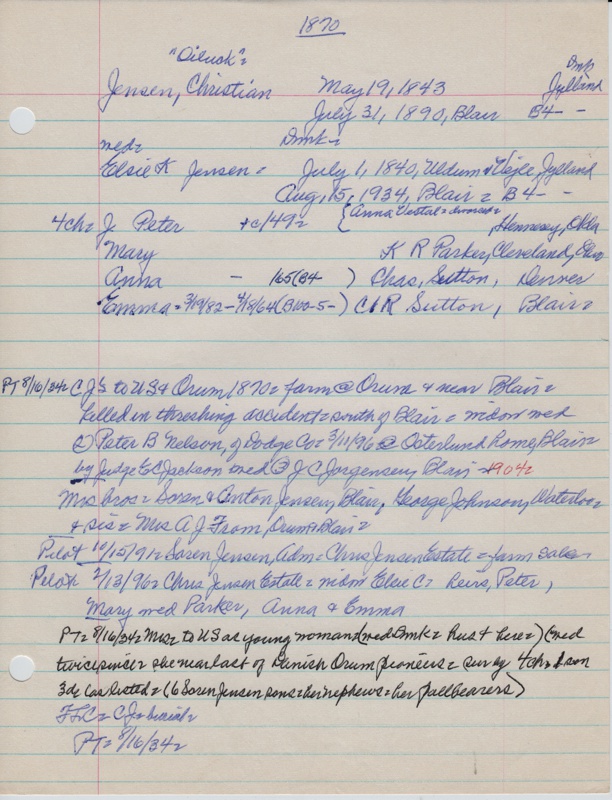 1870
"Oiluck"= Dmk
Jensen, Christian May 19, 1843 Jylland
July 31, 1890, Blair B4- -
med= Dmk=
Elsie K Jensen= July 1, 1840, Uldum Vejle, Jylland
Aug, 15, 1934, Blair= B4- -
4ch= J. Peter +c/49= {Anna Vestal=divorced=, Hennesey, Okla
Mary K R Parker, Cleveland, Okla
Anna - 165(B4- ) Chas, Sutton, Denver
Emma=3/19/82-4/13/64(B100-5-) C R Sutton, Blair=
PT 8/16/34= C J's to US & Orum 1870= farm @ Orum & near Blair=
killed in threshing accident=south of Blair= widow med
② Peter B Nelson, of Dodge Co=3/11/96 @ Osterlund Home, Blair=
by Judge E C Jackson med ③ J C Jorgensen, Blair -1904=
Mrs bros= Soren & Anton Jensen, Blair, George Johnson, Waterloo=
& sis= Mrs A J From, Orum & Blair=
Pilot 10/15/91= Soren Jensen, Adm= Chris Jensen Estate= farm sale=
Pilot 2/13/96= Chris Jensen Estate= widow Else C= heirs, Peter,
Mary med Parker, Anna & Emma
PT= 8/16/34= Mrs= to US as young woman (med Dmk= hus & here=) (med
twice since= she near last of Danish Orum pioneers= surv by 4ch= 1 son
3d= (as listed= (6 Soren Jensen sons=her nephews= her pallbearers)
FFC= CJ= burial=
PT= 8/16/34=